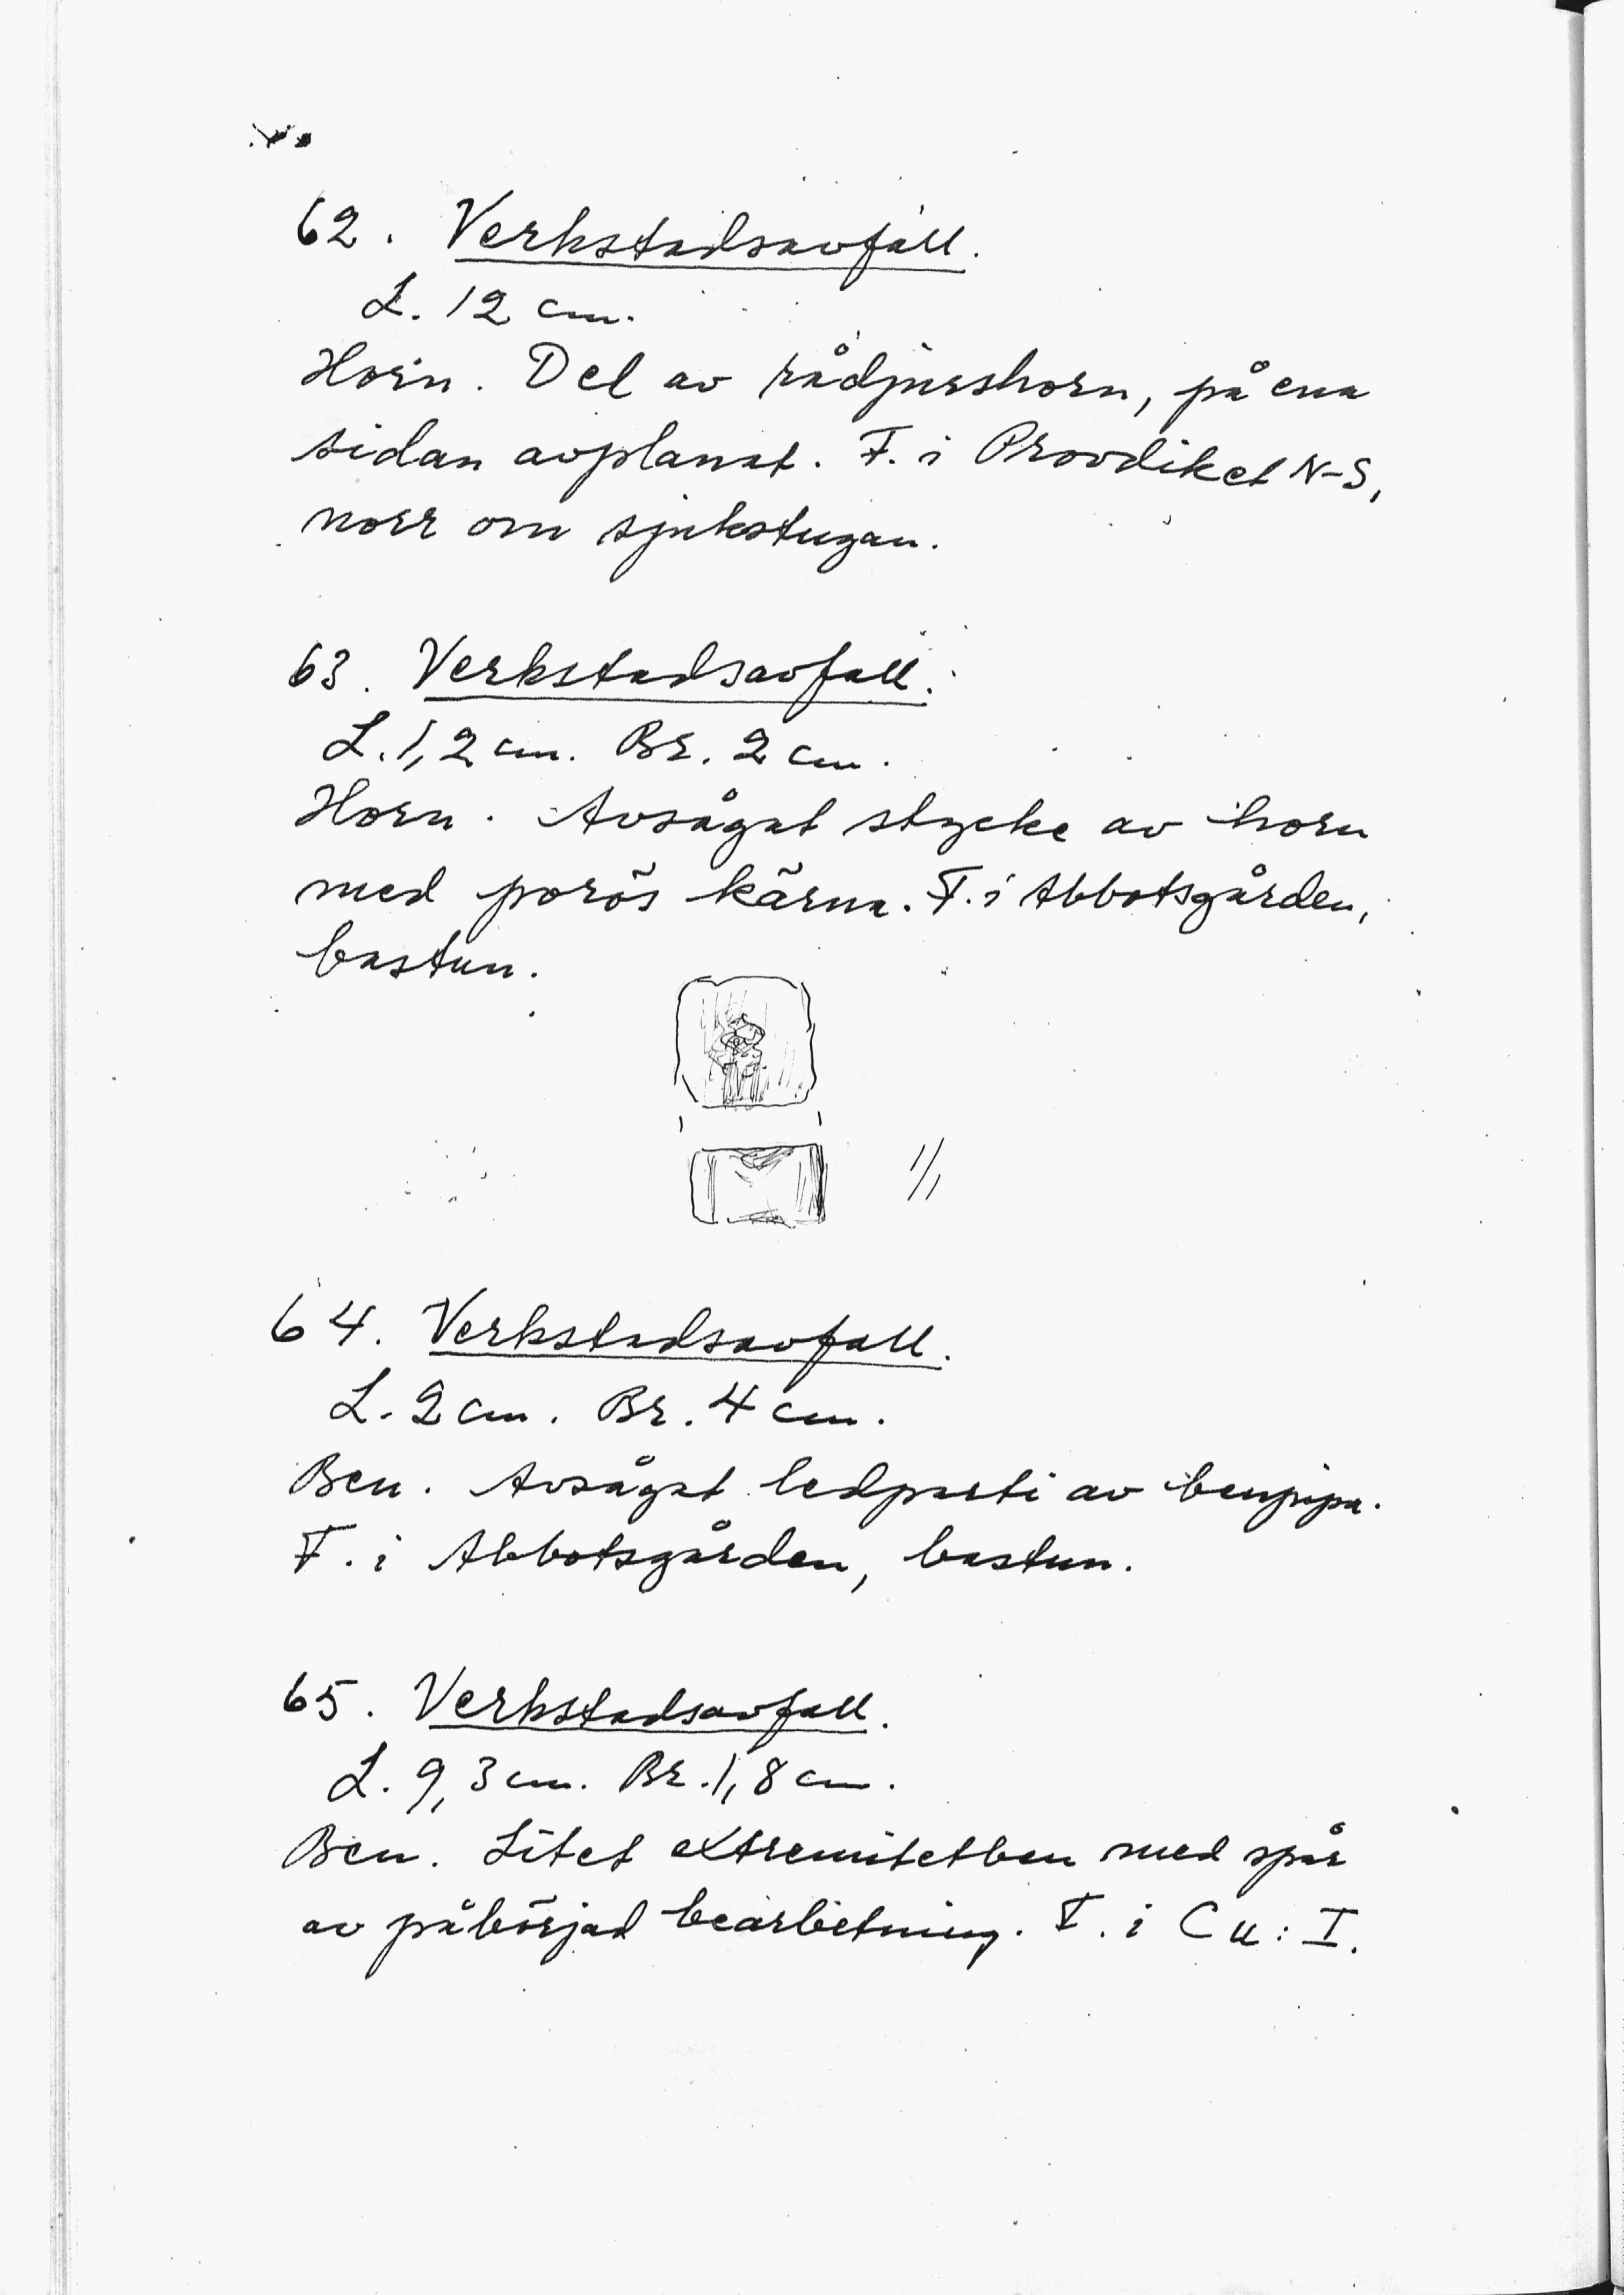 62. Verkstadsavfall.
L. 12 cm.
Horn. Del av rådjurshorn, på ena
sidan avplanat. F. i Provdiket N-S,
norr om sjukstugan.
63. Verkstadsavfall.
L. 1,2 cm. Br. 2 cm.
Horn. Avsågat stycke av horn
med porös kärna. F. i Abbotsgården,
bastun.
1/1
64. Verkstadsavfall.
L. 2 cm. Br. 4 cm.
Ben. Avsågat ledparti av benpipa.
F. i Abbotsgården, bastun.
65. Verkstadsavfall.
L. 9,3 cm. Br. 1,8 cm.
Ben. Litet extremitetben med spår
av påbörjad bearbetning. F. i C u: I.